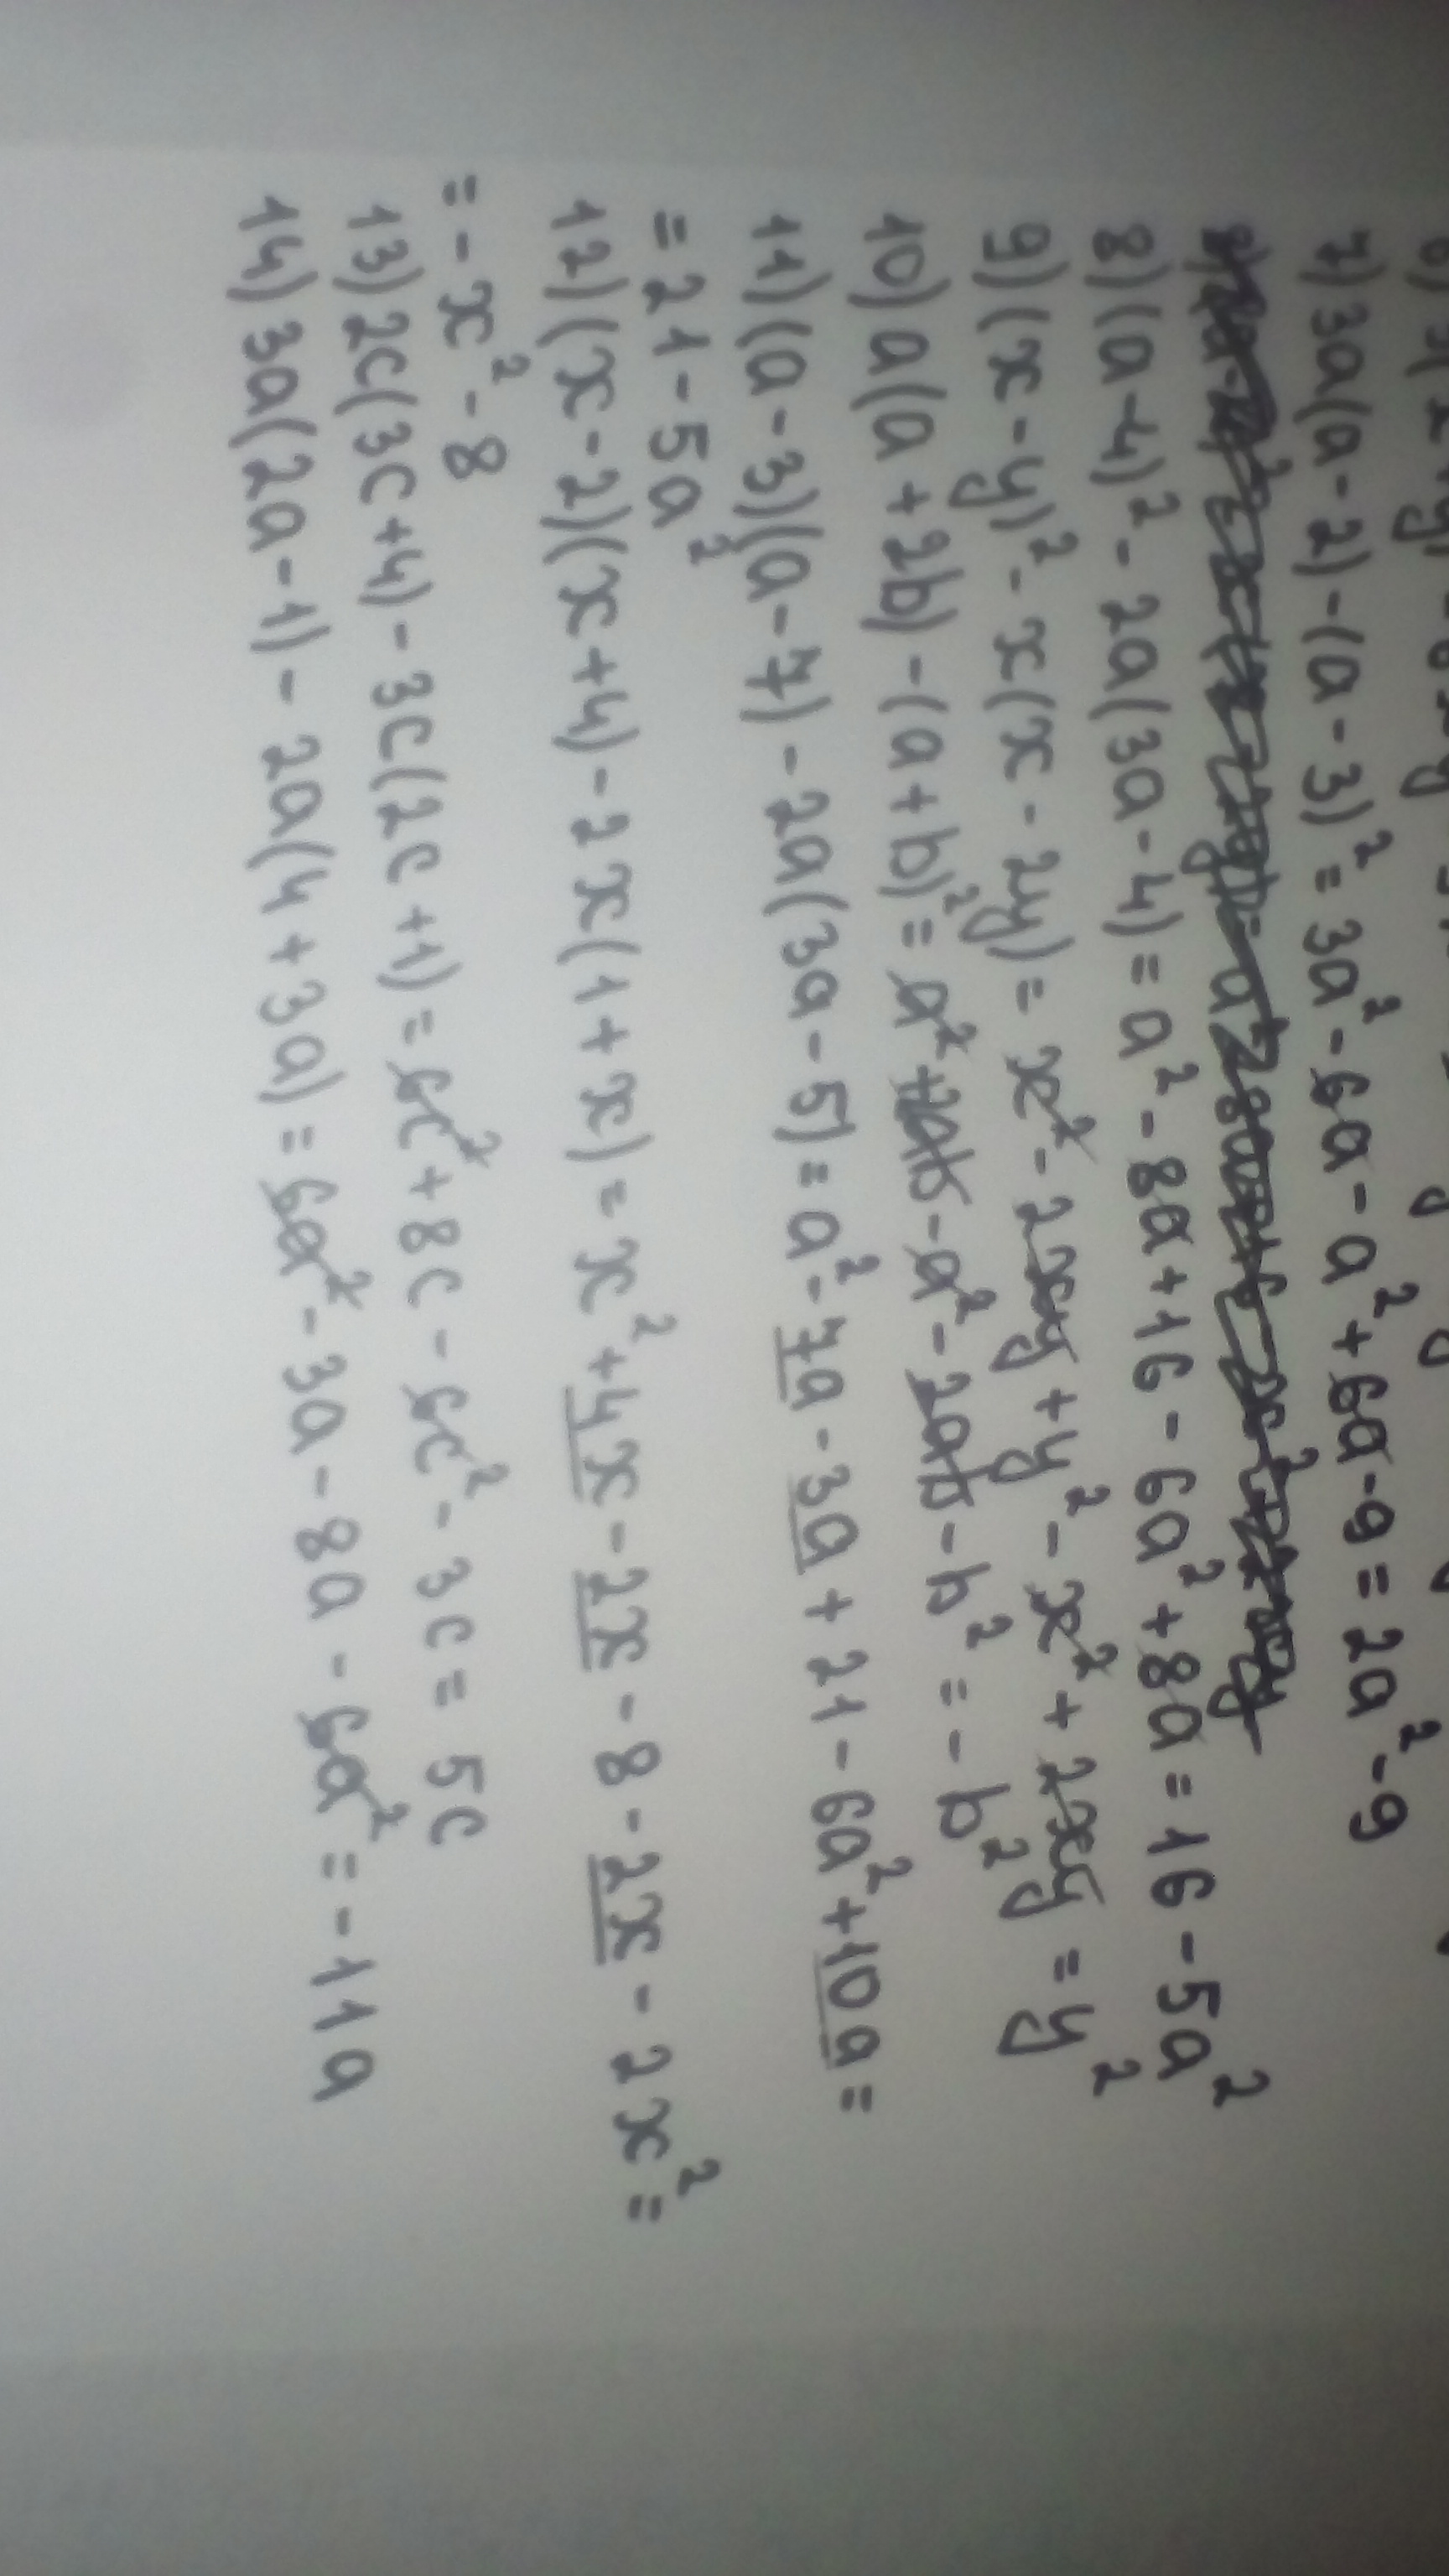 7) 3a(a-2)-(a-3)² = 3a²-6a-a²+6a-9 = 2a²-9
8) (a-4)² - 2a(3a-4) = a²-8a+16-6a²+8a = 16-5a²
9) (x-y)² - x(x-2y) = x²-2xy+y²-x²+2xy = y²
10) a(a+2b)-(a+b)² = a²+2ab-a²-2ab-b² = -b²
11) (a-3)(a-7)-2a(3a-5) = a²-7a-3a+21-6a²+10a =
= 21-5a²
12) (x-2)(x+4)-2x(1+x) = x²+4x-2x-8-2x-2x² =
= -x²-8
13) 2c(3c+4)-3c(2c+1) = 6c²+8c-6c²-3c = 5c
14) 3a(2a-1)-2a(4+3a) = 6a²-3a-8a-6a² = -11a